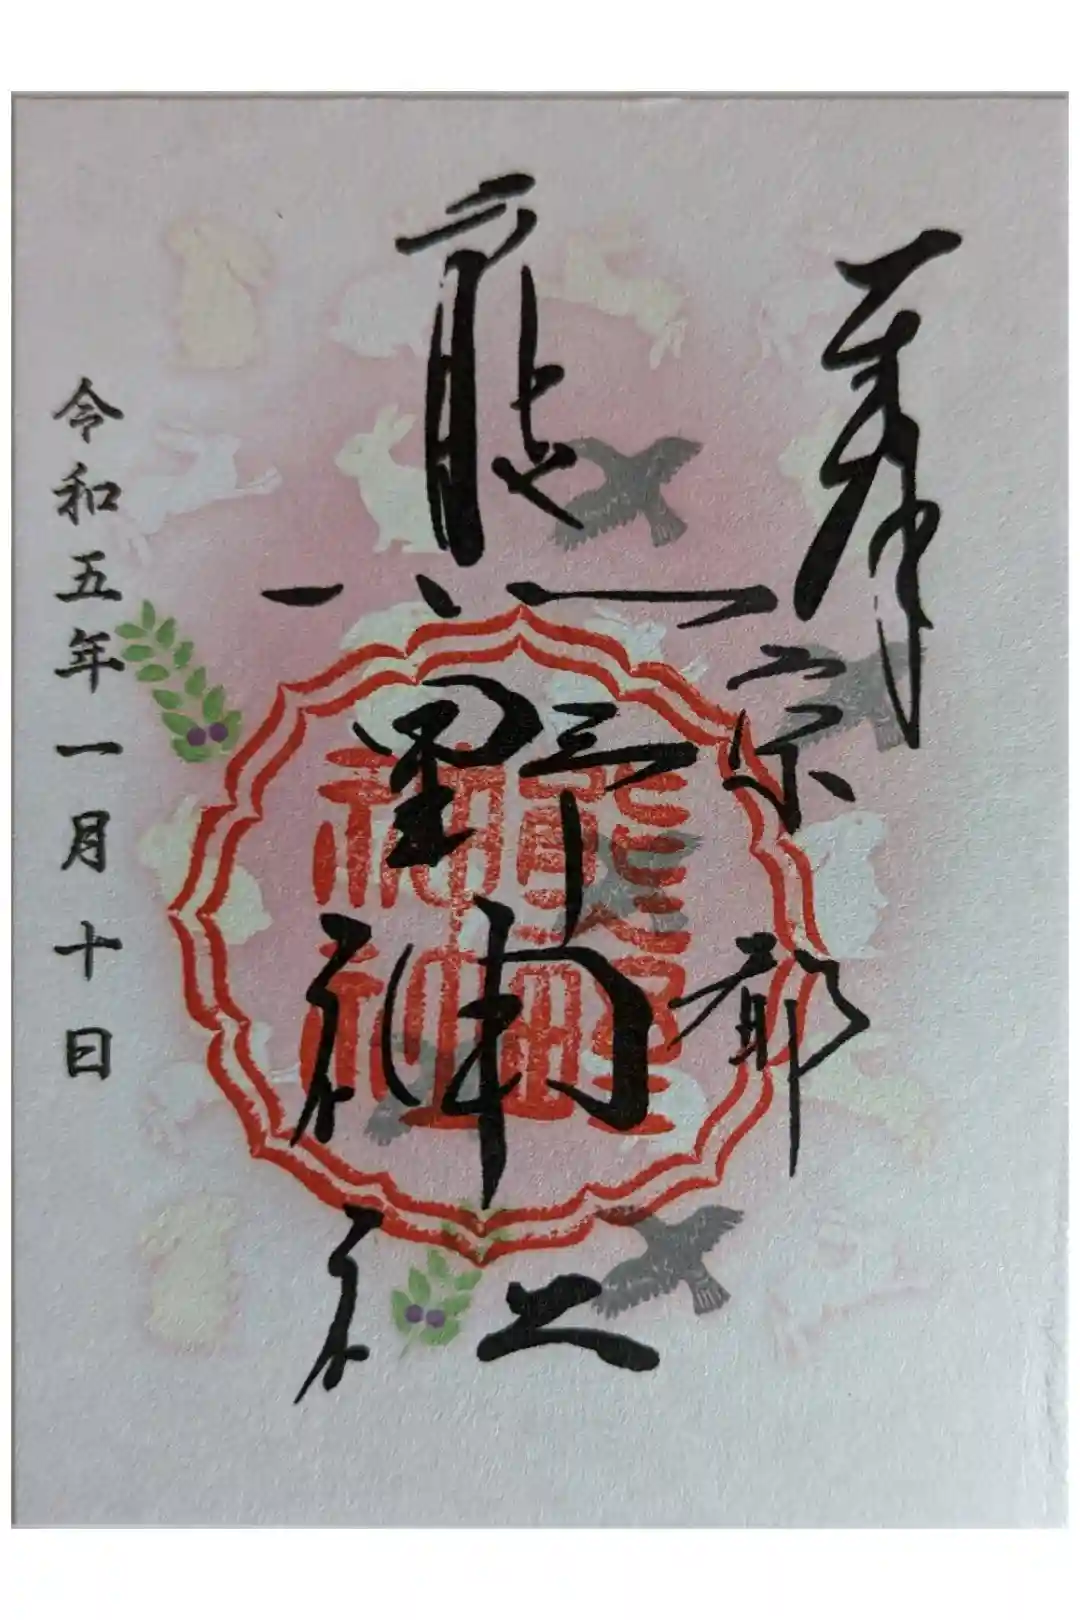 奉拝
京都
熊野神社
熊野神社
令和五年一月十日